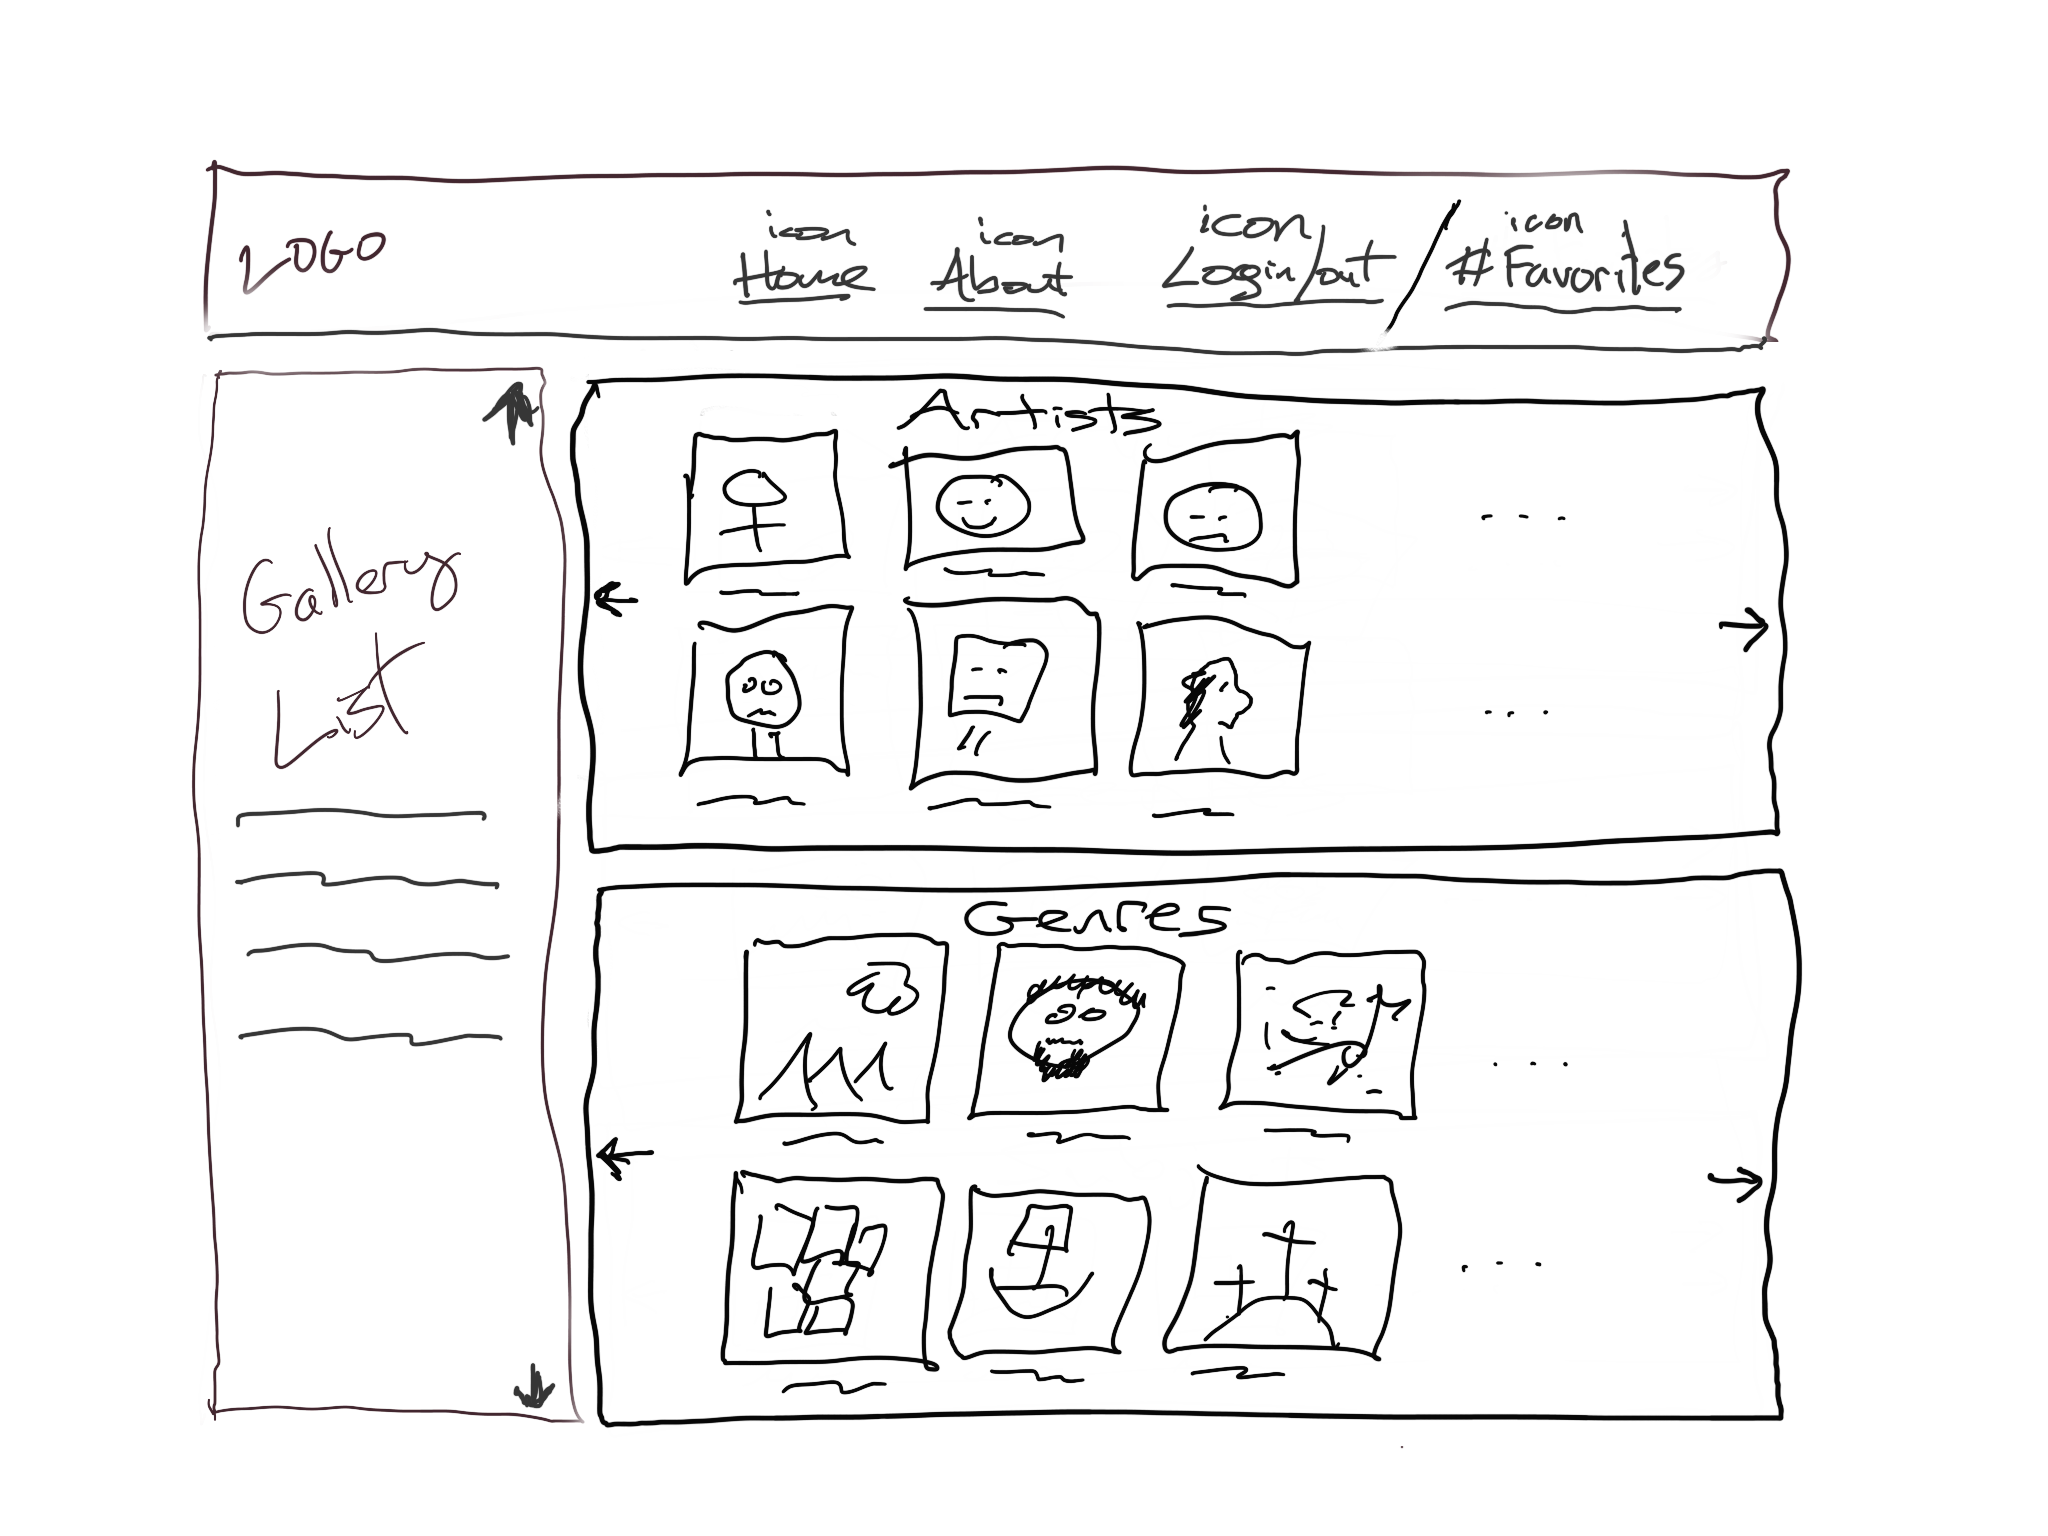 LOGO
icon
Home
icon
About
icon
Login/out
/
icon
# Favorites
Gallery
List
Artists
...
...
Genres
...
...